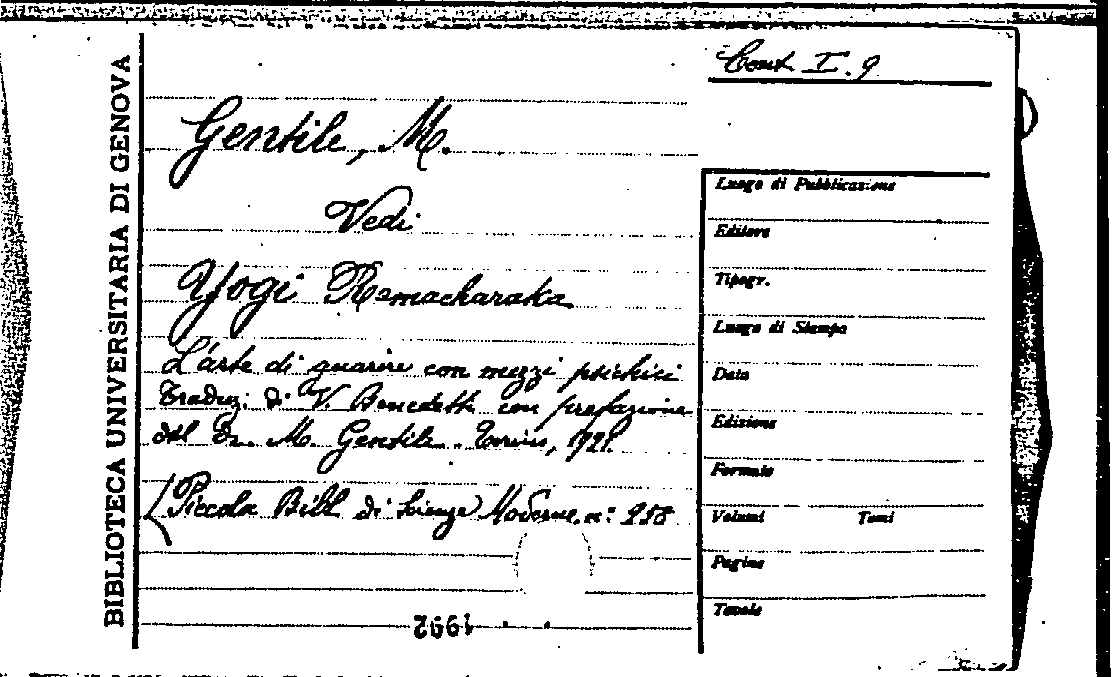 BIBLIOTECA UNIVERSITARIA DI GENOVA
Cont. I. 9
Gentile, M.
Vedi
Yogi Ramacharaka
L'arte di guarire con mezzi psichici
Traduz. di V. Benedetti con prefazione
del Dr. M. Gentile. Torino, 1921.
(Piccola Bibl. di Scienze Moderne, n: 258
1992
Luogo di Pubblicazione
Editore
Tipogr.
Luogo di Stampa
Data
Edizione
Formato
Volumi Tomi
Pagine
Tavole